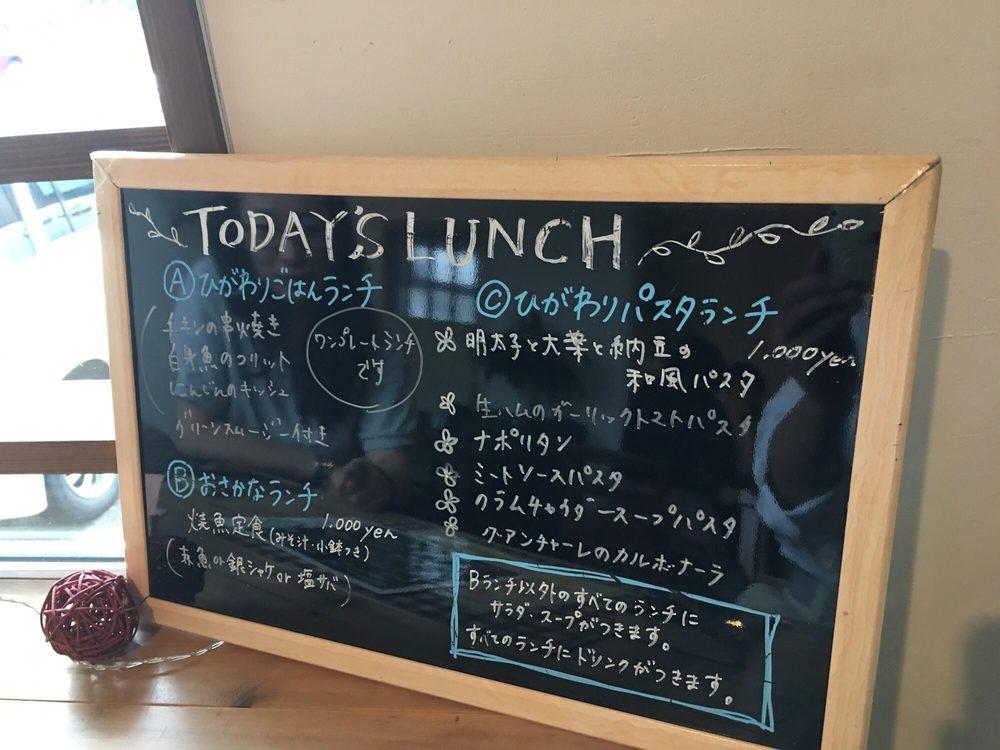 TODAY'S LUNCH
Ⓐひがわりごはんランチ
チキンの串焼き
白身魚のフリット
にんじんのキッシュ
グリーンスムージー付き
ワンプレートランチ
です
Ⓑおさかなランチ
焼魚定食 1.000yen
(みそ汁・小鉢つき)
(赤魚or銀シャケor塩サバ)
Ⓒひがわりパスタランチ
明太子と大葉と納豆の 1.000yen
和風パスタ
生ハムのガーリックトマトパスタ
ナポリタン
ミートソースパスタ
クラムチャウダースープパスタ
グアンチャーレのカルボナーラ
Bランチ以外のすべてのランチに
サラダ・スープがつきます。
すべてのランチにドリンクがつきます。